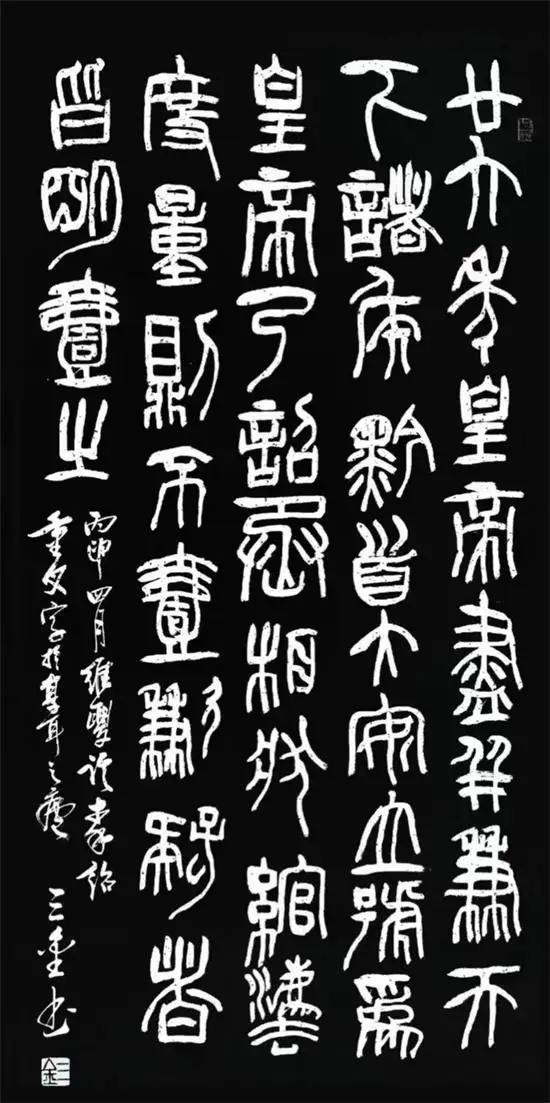 廿六年皇帝盡并兼天
下諸侯黔首大安立號為
皇帝乃詔丞相狀綰灋
度量則不壹歉疑者
皆明壹之
丙申四月 秦詔
文字於 耳之
三金書
三金